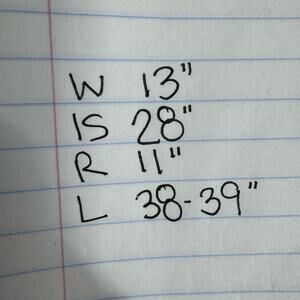 W 13"
IS 28"
R 11"
L 38-39"